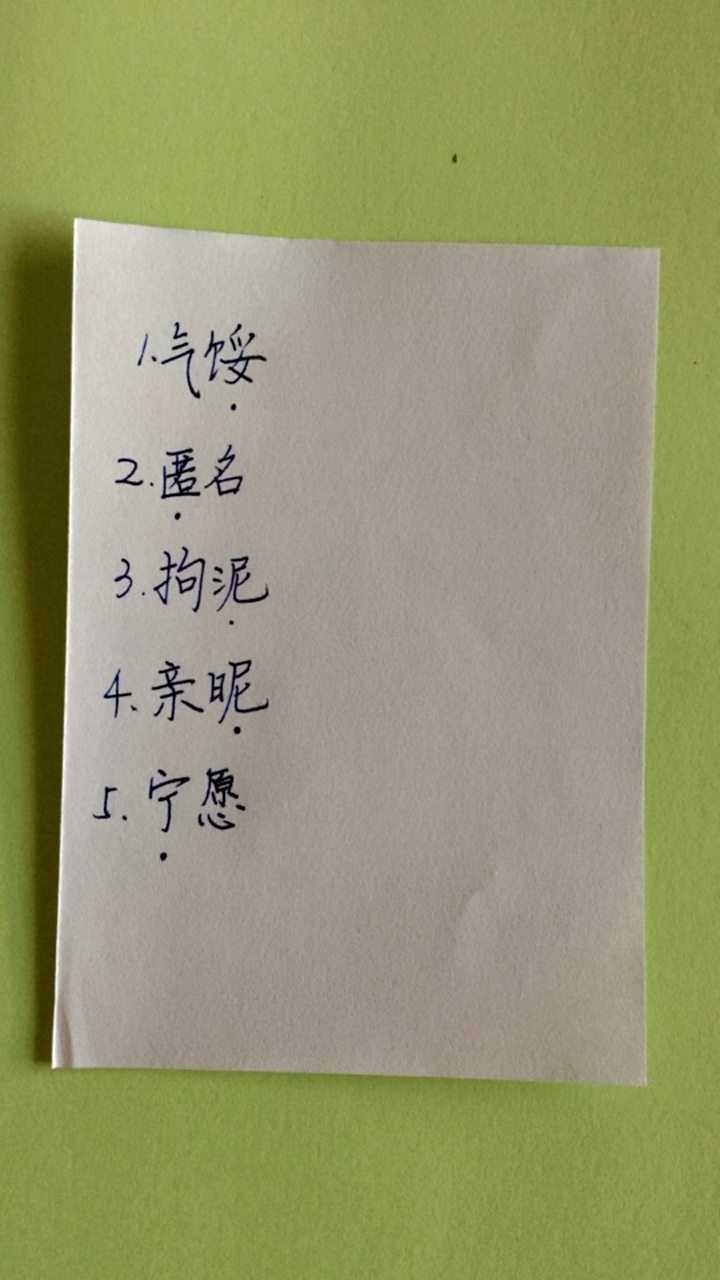 1.气馁
2.匿名
3.拘泥
4.亲昵
5.宁愿